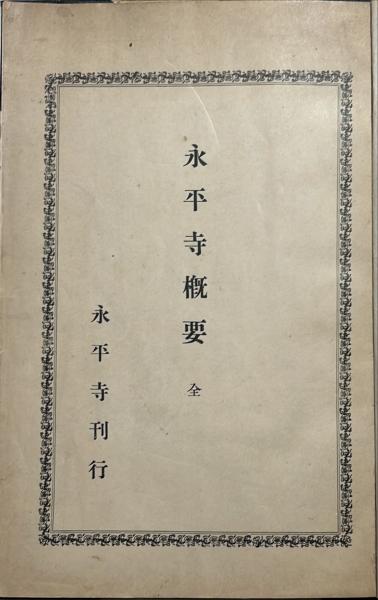 永平寺概要 全
永平寺刊行